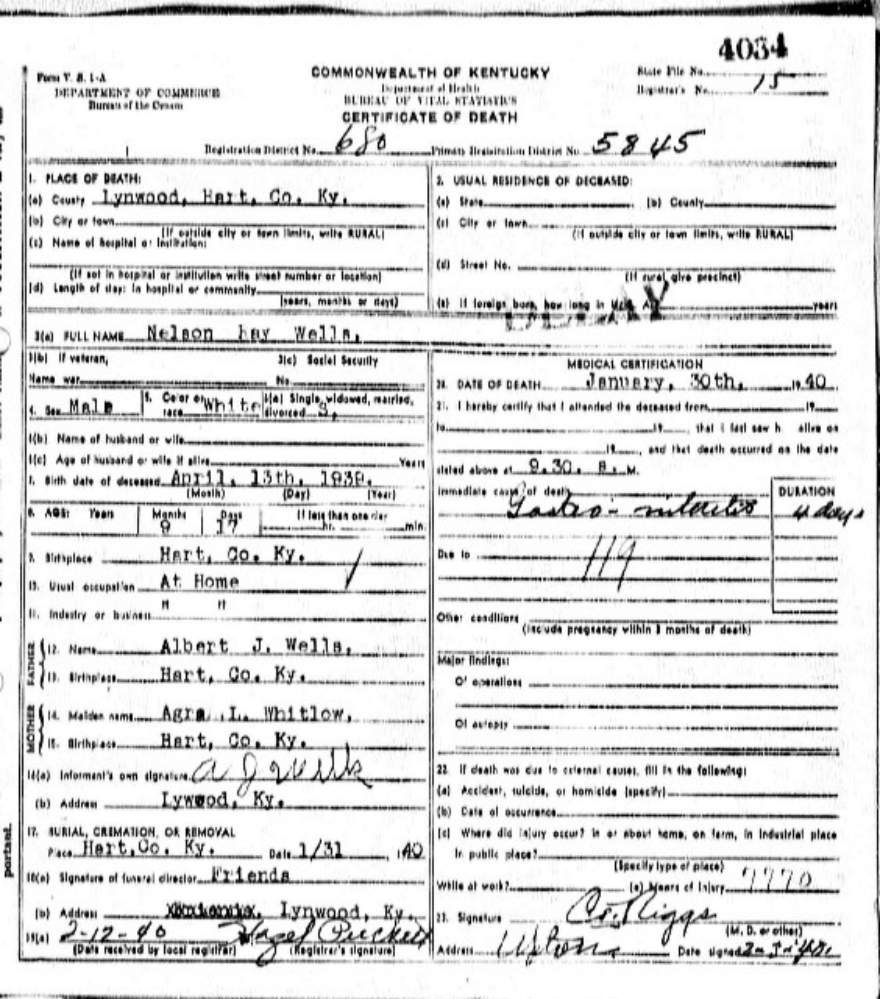 4034
Form V. S. 1-A
COMMONWEALTH OF KENTUCKY
State File No.
DEPARTMENT OF COMMERCE
Department of Health
Registrar's No. 15
Bureau of the Census
BUREAU OF VITAL STATISTICS
CERTIFICATE OF DEATH
Registration District No. 680 Primary Registration District No. 5845
1. PLACE OF DEATH:
(a) County Lynwood, Hart, Co. Ky.
(b) City or town
(If outside city or town limits, write RURAL)
(c) Name of hospital or institution:
(If not in hospital or institution write street number or location)
(d) Length of stay: In hospital or community
(years, months or days)
2. USUAL RESIDENCE OF DECEASED:
(a) State (b) County
(c) City or town
(If outside city or town limits, write RURAL)
(d) Street No.
(If rural, give precinct)
(e) If foreign born, how long in U. S. A.? years
3(a) FULL NAME Nelson Ray Wells,
3(b) If veteran,
Name war
3(c) Social Security
No.
4. Sex Male 5. Color or race White 6(a) Single, widowed, married, divorced S.
6(b) Name of husband or wife
6(c) Age of husband or wife if alive Years
7. Birth date of deceased April, 13th, 1939.
(Month) (Day) (Year)
8. AGE: Years Months 9 Days 17 If less than one day hr. min.
9. Birthplace Hart, Co. Ky.
10. Usual occupation At Home
11. Industry or business " "
FATHER
12. Name Albert J. Wells,
13. Birthplace Hart, Co. Ky.
MOTHER
14. Maiden name Agra .L. Whitlow,
15. Birthplace Hart, Co. Ky.
16(a) Informant's own signature A J Wells
(b) Address Lywood, Ky.
17. BURIAL, CREMATION, OR REMOVAL
Place Hart,Co. Ky. Date 1/31 , 1940
18(a) Signature of funeral director Friends
(b) Address Lynwood, Ky.
19(a) 2-12-40 Hazel Puckett
(Date received by local registrar) (Registrar's signature)
MEDICAL CERTIFICATION
20. DATE OF DEATH January, 30th, 1940
21. I hereby certify that I attended the deceased from 19
to 19 , that I last saw h alive on
19 , and that death occurred on the date
stated above at 9.30. M.
Immediate cause of death
DURATION
Gastro-enteritis 4 days
Due to 119
Other conditions
(Include pregnancy within 3 months of death)
Major findings:
Of operations
Of autopsy
22. If death was due to external causes, fill in the following:
(a) Accident, suicide, or homicide (specify)
(b) Date of occurrence
(c) Where did injury occur? In or about home, on farm, in industrial place
In public place?
(Specify type of place)
While at work? (e) Means of Injury 7770
23. Signature Riggs
(M. D. or other)
Address Upton Date signed
portant.